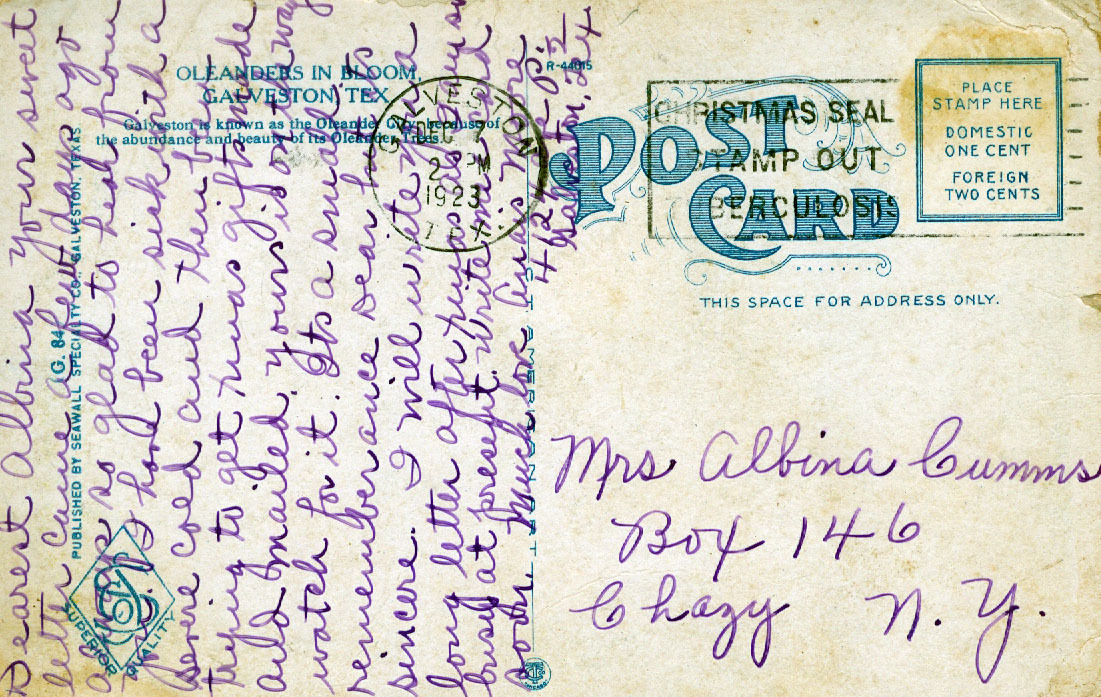 OLEANDERS IN BLOOM,
GALVESTON, TEX.
Galveston is known as the Oleander City because of
the abundance and beauty of its Oleander Trees.
R-44015
GALVESTON
DEC 7
2 PM
1923
TEX.
CHRISTMAS SEAL
STAMP OUT
TUBERCULOSIS
POST
CARD
PLACE
STAMP HERE
DOMESTIC
ONE CENT
FOREIGN
TWO CENTS
THIS SPACE FOR ADDRESS ONLY.
Mrs Albina Cumms
Box 146
Chazy N. Y.
Dearest Albina Your sweet
letter came a few days ago
always so glad to hear from
I have been sick with a
severe cold and then just
trying to get Xmas gifts made
and mailed. yours is on the way
watch for it. Its a small
remembrance dear but its
sincere. I will write you a
long letter after Xmas as I am so
busy at present. Write me
soon. Much love
G. 84
PUBLISHED BY SEAWALL SPECIALTY CO., GALVESTON, TEXAS
SUPERIOR QUALITY
C. T. AMERICAN ART
CHICAGO